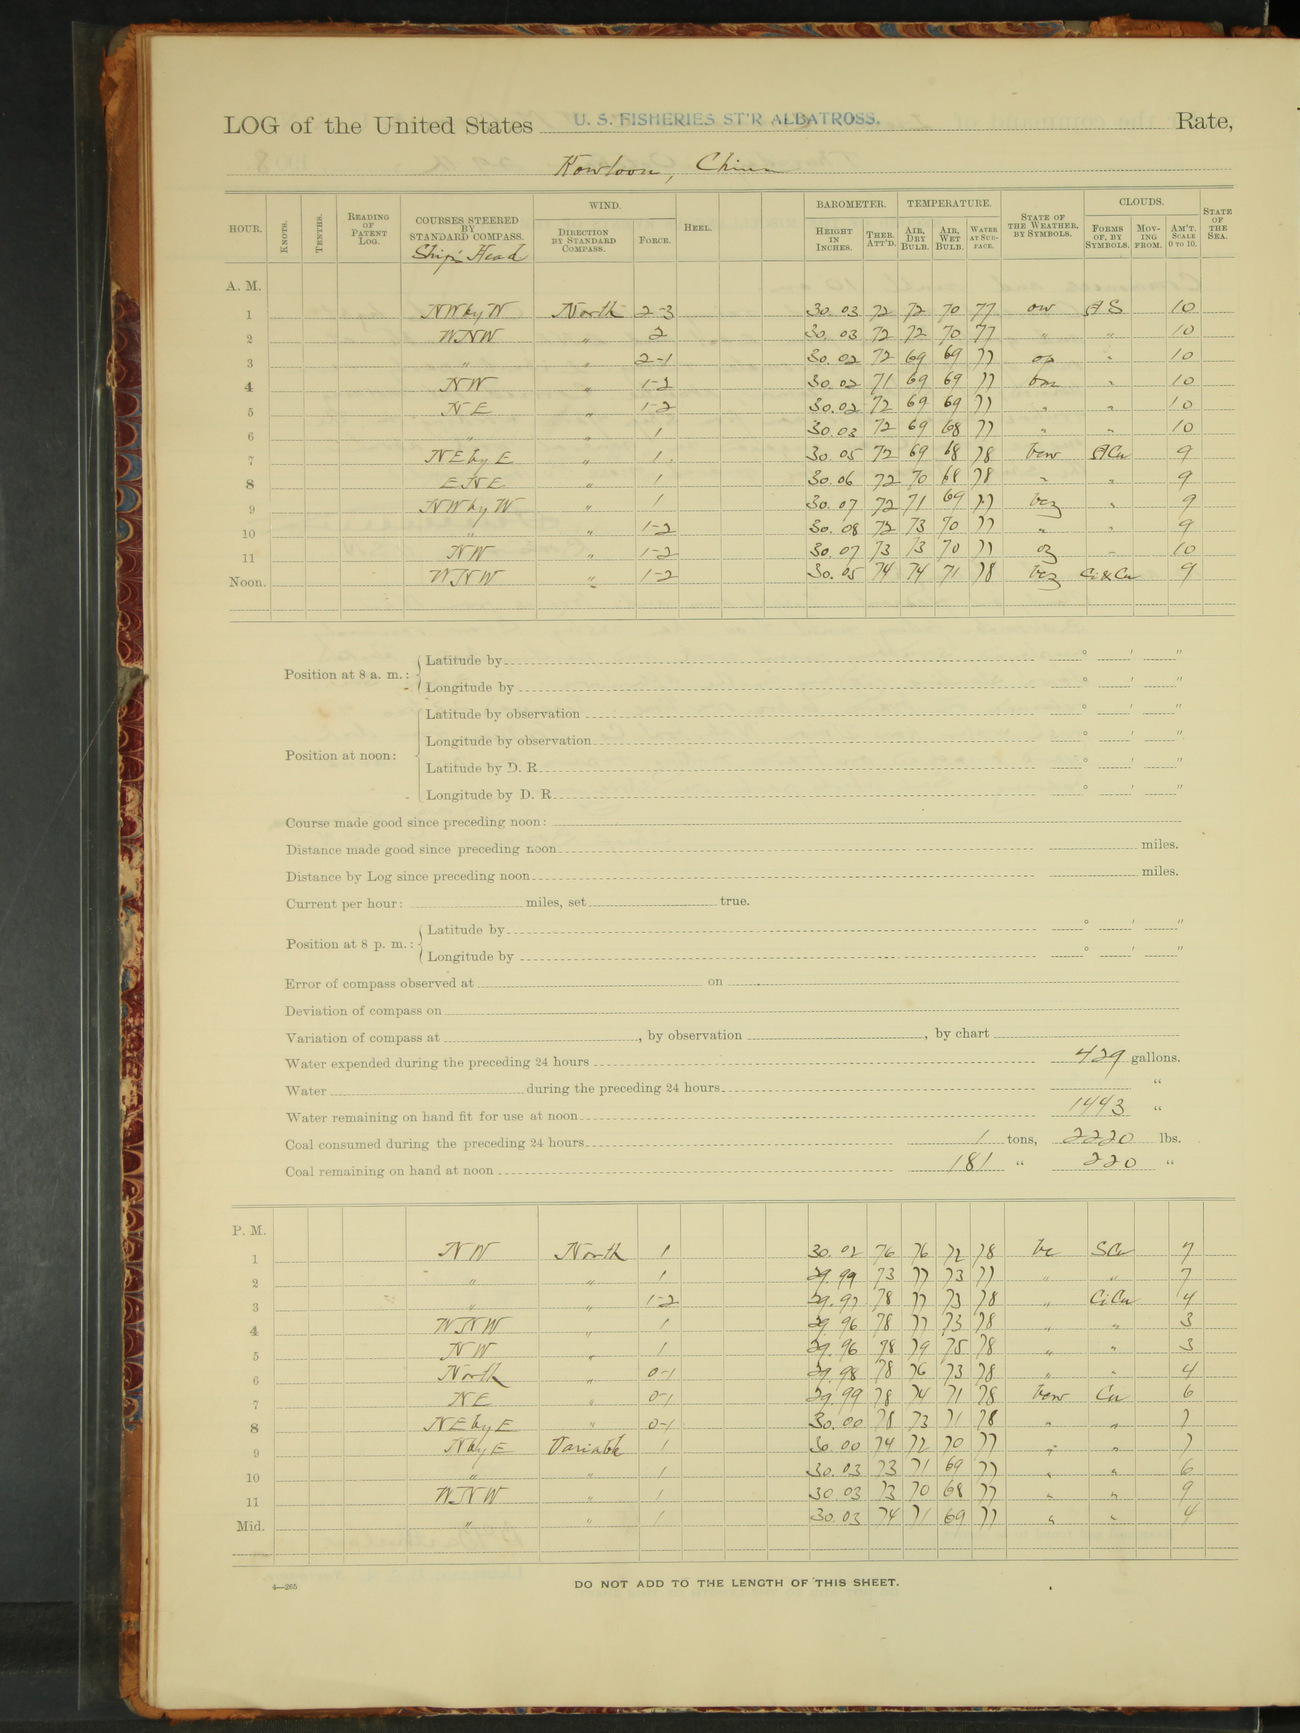 LOG of the United States U. S. FISHERIES ST'R ALBATROSS. Rate,
Kowloon, China
HOUR. KNOTS. TENTHS. READING OF PATENT LOG. COURSES STEERED BY STANDARD COMPASS. Ship's Head WIND. DIRECTION BY STANDARD COMPASS. FORCE. HEEL. BAROMETER. HEIGHT IN INCHES. THER. ATT'D. TEMPERATURE. AIR, DRY BULB. AIR, WET BULB. WATER AT SURFACE. STATE OF THE WEATHER, BY SYMBOLS. CLOUDS. FORMS OF, BY SYMBOLS. MOVING FROM. AM'T. SCALE 0 TO 10. STATE OF THE SEA.
A. M.
1 NW by W North 2-3 30.03 72 72 70 77 ow S 10
2 WNW " 2 30.03 72 72 70 77 " " 10
3 " " 2-1 30.02 72 69 69 77 " 10
4 NW " 1-2 30.02 71 69 69 77 " 10
5 NE " 1-2 30.02 72 69 69 77 " " 10
6 " " 1 30.03 72 69 68 77 " " 10
7 NE by E " 1 30.05 72 69 68 78 bcw Cu 9
8 ENE " 1 30.06 72 70 68 78 " " 9
9 NW by W " 1 30.07 72 71 69 77 bcz " 9
10 " " 1-2 30.08 72 73 70 77 " " 9
11 NW " 1-2 30.07 73 73 70 77 oz " 10
Noon. WNW " 1-2 30.05 74 74 71 78 bcz Ci & Cu 9
Position at 8 a. m.: Latitude by ° ′ ″
Longitude by ° ′ ″
Position at noon: Latitude by observation ° ′ ″
Longitude by observation ° ′ ″
Latitude by D. R. ° ′ ″
Longitude by D. R. ° ′ ″
Course made good since preceding noon:
Distance made good since preceding noon miles.
Distance by Log since preceding noon miles.
Current per hour: miles, set true.
Position at 8 p. m.: Latitude by ° ′ ″
Longitude by ° ′ ″
Error of compass observed at on
Deviation of compass on
Variation of compass at , by observation , by chart
Water expended during the preceding 24 hours 429 gallons.
Water during the preceding 24 hours "
Water remaining on hand fit for use at noon 1443 "
Coal consumed during the preceding 24 hours 1 tons, 2220 lbs.
Coal remaining on hand at noon 181 " 220 "
P. M.
1 NW North 1 30.02 76 76 72 78 bc SCu 7
2 " " 1 29.99 73 77 73 77 " " 7
3 " " 1-2 29.97 78 77 73 78 " CiCu 4
4 WNW " 1 29.96 78 77 73 78 " " 3
5 NW " 1 29.96 78 79 75 78 " " 3
6 North " 0-1 29.98 78 76 73 78 " " 4
7 NE " 0-1 29.99 78 74 71 78 bcw Cu 6
8 NE by E " 0-1 30.00 78 73 71 78 " " 7
9 N by E Variable 1 30.00 74 72 70 77 " " 7
10 " " 1 30.03 73 71 69 77 " " 6
11 WNW " 1 30.03 73 70 68 77 " " 9
Mid. " " 1 30.03 74 71 69 77 " " 4
4—265
DO NOT ADD TO THE LENGTH OF THIS SHEET.